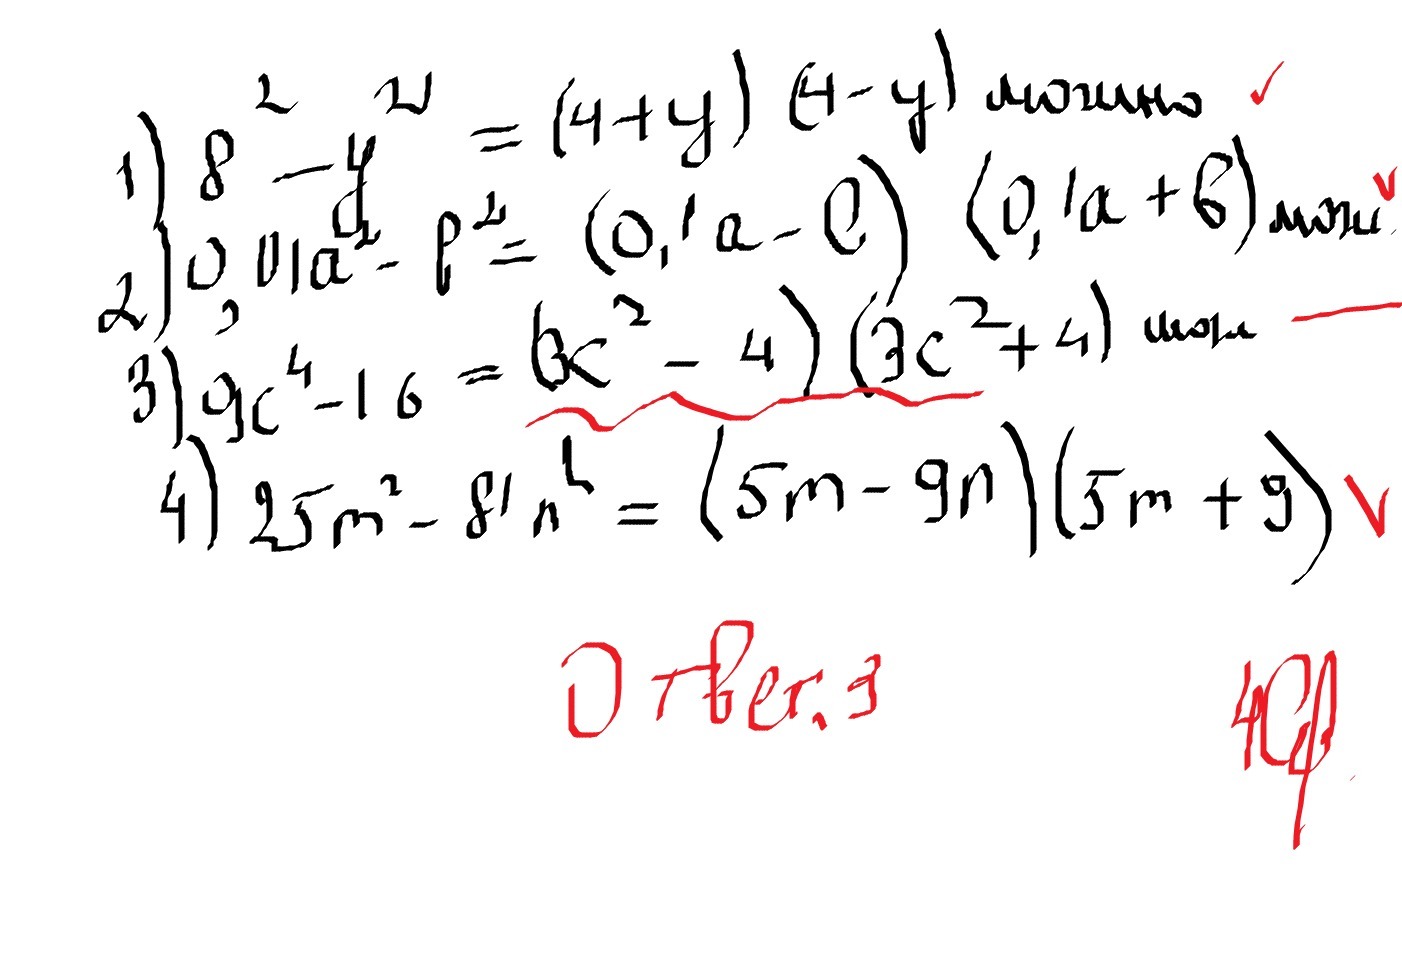 1) 8² - y² = (4+y) (4-y) можно ✓
2) 0,01a² - β² = (0,1a - b) (0,1a + b) мож. v
3) 9c⁴ - 16 = (3c² - 4) (3c² + 4) мож —
4) 25m² - 81n² = (5m - 9n) (5m + 9) v
Ответ. 3